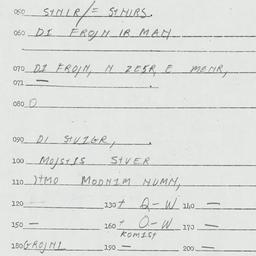 050 S+NIR/= S+NIRS.
060 DI FROJN IR MAN
070 DI FROJN, N ZESR E MENR,
071 —
080 O
090 DI S+VIGR, .
100 MOJS+IS S+VER
110 )+MO MODNIM NUMN,
120 130+ Q-W 140 —
150 — 160+ O-W 170 —
KOMIS+
180 GROJNI 190 — 200 —